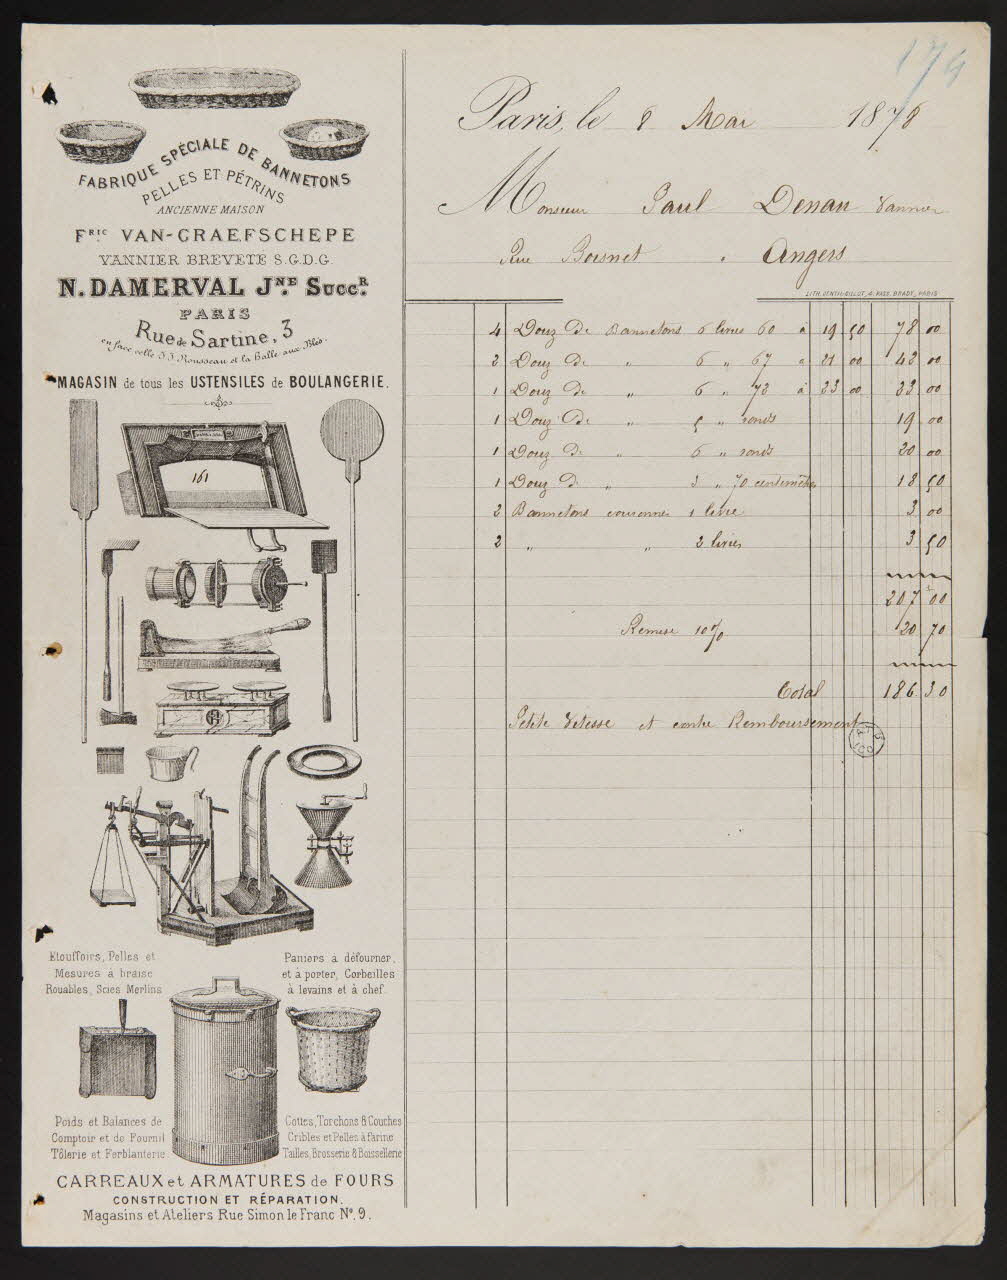 174
FABRIQUE SPÉCIALE DE BANNETONS
PELLES ET PÉTRINS
ANCIENNE MAISON
Fric VAN-GRAEFSCHEPE
VANNIER BREVETÉ S.G.D.G.
N. DAMERVAL JNE SUCCR
PARIS
Rue de Sartine, 3
en face celle J.J. Rousseau et la Halle aux Blés.
MAGASIN de tous les USTENSILES de BOULANGERIE.
161
Etouffoirs, Pelles et
Mesures à braise
Rouables, Scies Merlins
Paniers à défourner,
et à porter, Corbeilles
à levains et à chef.
Poids et Balances de
Comptoir et de Fournil
Tôlerie et Ferblanterie
Cottes, Torchons & Couches
Cribles et Pelles à farine
Tailles, Brosserie & Boissellerie
CARREAUX et ARMATURES de FOURS
CONSTRUCTION ET RÉPARATION.
Magasins et Ateliers Rue Simon le Franc No. 9.
Paris, le 8 Mai 1878
Monsieur Paul Denau Vannier
Rue Boisnet " Angers
LITH. GENTIL-DILLUT, 4, PASS. BRADY, PARIS
4 Douz de Bannetons 6 livres 60 à 19 50 78 00
2 Douz de " 6 " 67 à 21 00 42 00
1 Douz de " 6 " 73 à 23 00 23 00
1 Douz de " 5 " ronds 19 00
1 Douz de " 6 " ronds 20 00
1 Douz de " 3 " 70 centimètres 18 50
2 Bannetons couronne 1 livre 3 00
2 " " 2 livres 3 50
207 00
Remise 10% 20 70
Total 186 30
Petite Vitesse et contre Remboursement